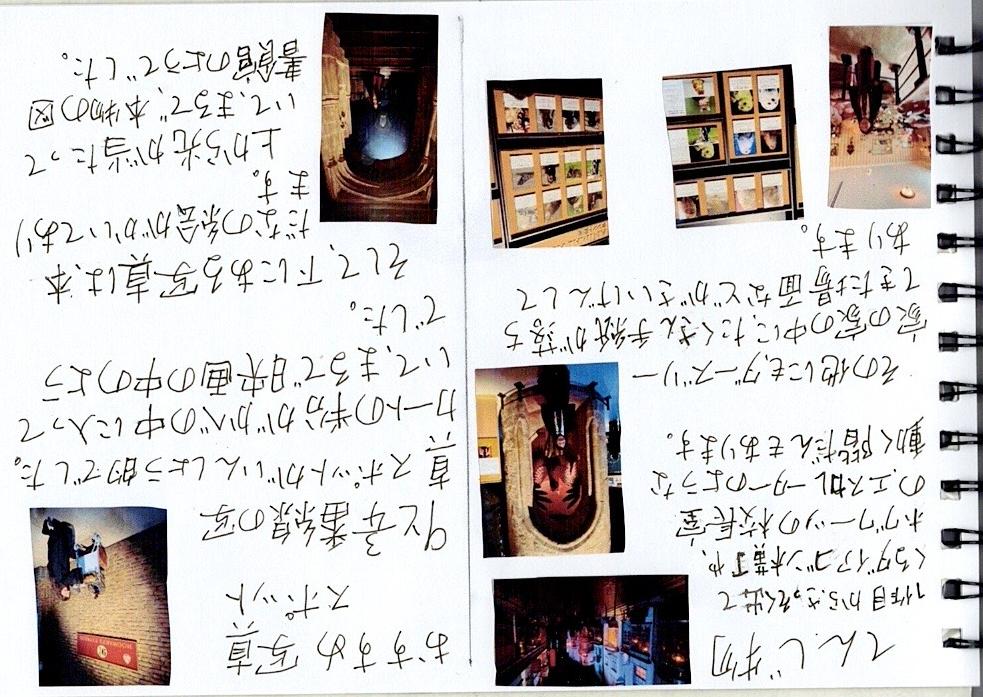 てんじ物
1作目からさっそく出て
くるダイアゴン横丁や、
ホグワーツの校長室
のエスカレーターのような
動く階だんもあります。
その他にもダーズリー
家の家の中にたくさん手紙が落ち
てきた場面などがさいげんして
あります。
おすすめ写真
スポット
9と3/4番線の写
真スポットがいんしょう的でした。
カートの半分がかべの中に入って
いて、まるで映画の中のよう
でした。
そして、下にある写真は、本
だなの絵がかいてあり
ます。
上から光が当たって
いて、まるで本物の図
書館のようでした。